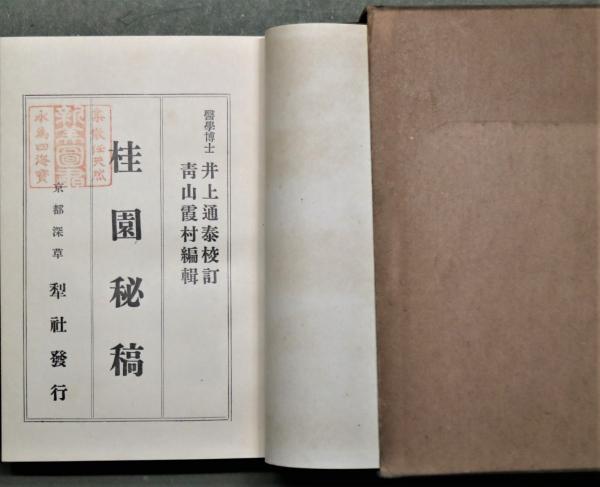 醫學博士 井上通泰校訂
靑山霞村編輯
桂園秘稿
京都深草 犁社發行
集散任天然
永爲四海寶